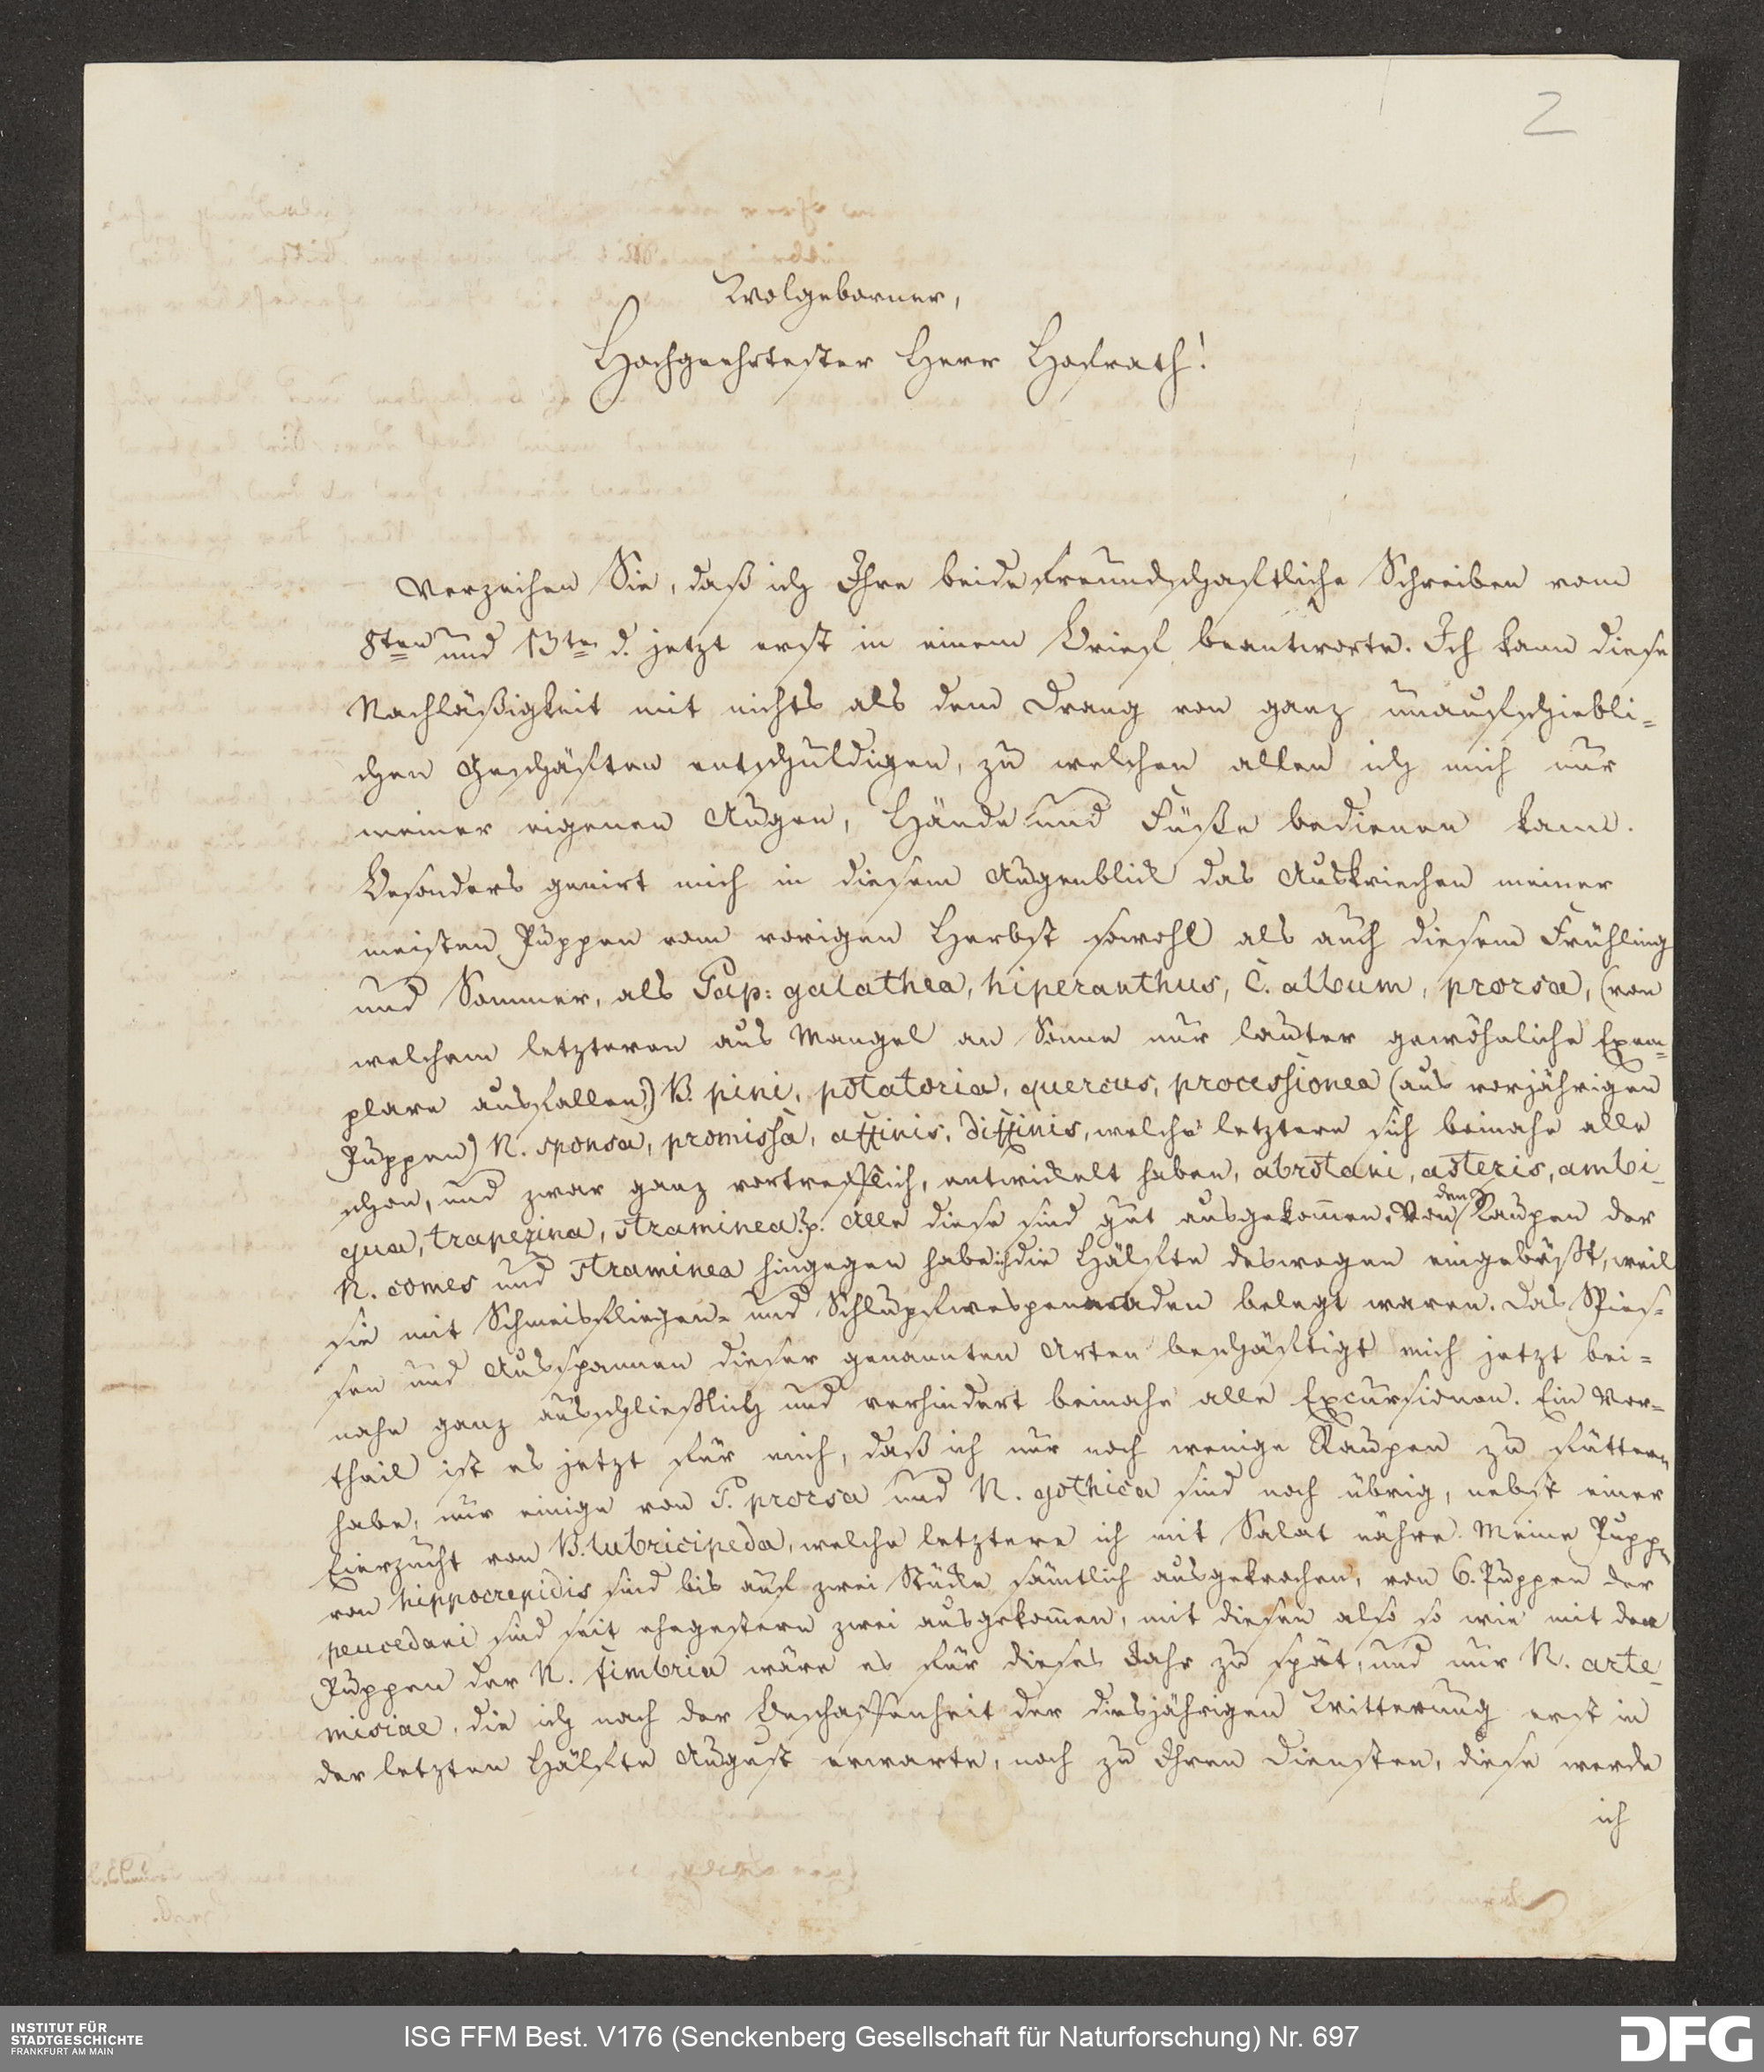 2
Wolgeborner,
Hochgeehrtester Herr Hofrath!
Verzeihen Sie, daß ich Ihre beide freundschaftliche Schreiben vom
8ten und 13ten d. jetzt erst in einem Brief beantworte. Ich kann diese
Nachläßigkeit mit nichts als dem Drang von ganz unaufschiebli=
chen Geschäften entschuldigen, zu welchen allen ich mich nur
meiner eigenen Augen, Hände und Füße bedienen kann.
Besonders genirt mich in diesem Augenblick das Auskriechen meiner
meisten Puppen vom vorigen Herbst sowohl als auch diesem Frühling
und Sommer, als Pap: galathea, hiperanthus, C. album, prorsa, (von
welchem letzteren aus Mangel an Sonne nur lauter gewöhnliche Exem=
plare ausfallen,) B. pini, potatoria, quercus, processionea (aus vorjährigen
Puppen) N. sponsa, promissa, affinis, diffinis, welche letztere sich beinahe alle
schon, und zwar ganz vortrefflich, entwickelt haben, abrotani, asteris, ambi=
gua, trapezina, straminea p. Alle diese sind gut ausgekom̄en. Von den Raupen der
N. comes und straminea hingegen habe ich die Hälfte deswegen eingebüßt, weil
sie mit Schmeisfliegen= und Schlupfwespenmaden belegt waren. Das Spies=
sen und Ausspannen dieser genannten Arten beschäftigt mich jetzt bei=
nahe ganz ausschließlich und verhindert beinahe alle Excursionen. Ein Vor=
theil ist es jetzt für mich, daß ich nur noch wenige Raupen zu füttern
habe, nur einige von P. prorsa und N. gothica sind noch übrig, nebst einer
Eierzucht von B. lubricipeda, welche letztere ich mit Salat nähre. Meine Puppen
von hippocrepidis sind bis auf zwei Stücke sämtlich ausgekrochen, von 6. Puppen der
peucedani sind seit ehegestern zwei ausgekom̄en, mit diesen also so wie mit den
Puppen der N. fimbria wäre es für dieses Jahr zu spät, und nur N. arte=
misiae, die ich nach der Beschaffenheit der diesjährigen Witterung erst in
der letzten Hälfte August erwarte, noch zu Ihren Diensten, diese werde
ich
INSTITUT FÜR
STADTGESCHICHTE
FRANKFURT AM MAIN
ISG FFM Best. V176 (Senckenberg Gesellschaft für Naturforschung) Nr. 697
DFG